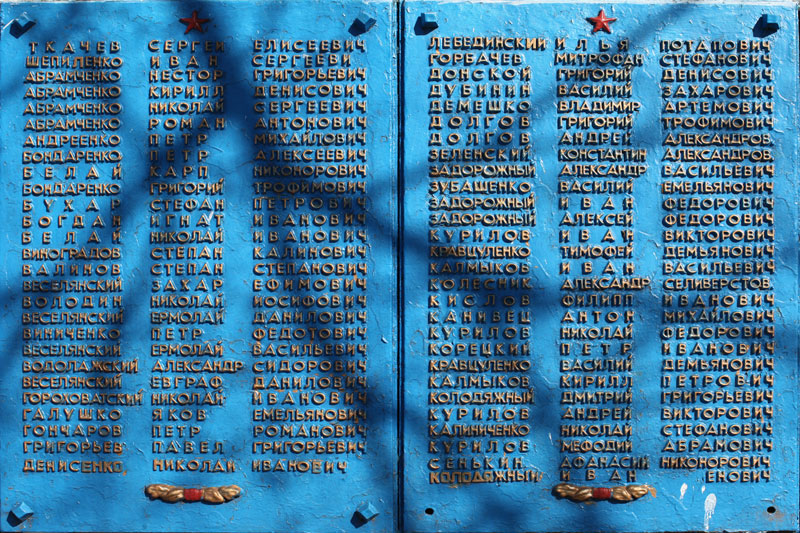 ТКАЧЕВ СЕРГЕЙ ЕЛИСЕЕВИЧ
ШЕПИЛЕНКО ИВАН СЕРГЕЕВИ
АБРАМЧЕНКО НЕСТОР ГРИГОРЬЕВИЧ
АБРАМЧЕНКО КИРИЛЛ ДЕНИСОВИЧ
АБРАМЧЕНКО НИКОЛАЙ СЕРГЕЕВИЧ
АБРАМЧЕНКО РОМАН АНТОНОВИЧ
АНДРЕЕНКО ПЕТР МИХАЙЛОВИЧ
БОНДАРЕНКО ПЕТР АЛЕКСЕЕВИЧ
БЕЛАЙ КАРП НИКОНОРОВИЧ
БОНДАРЕНКО ГРИГОРИЙ ТРОФИМОВИЧ
БУХАР СТЕФАН ПЕТРОВИЧ
БОГДАН ИГНАТ ИВАНОВИЧ
БЕЛАЙ НИКОЛАЙ ИВАНОВИЧ
ВИНОГРАДОВ СТЕПАН КАЛИНОВИЧ
ВАЛИНОВ СТЕПАН СТЕПАНОВИЧ
ВЕСЕЛЯНСКИЙ ЗАХАР ЕФИМОВИЧ
ВОЛОДИН НИКОЛАЙ ИОСИФОВИЧ
ВЕСЕЛЯНСКИЙ ЕРМОЛАЙ ДАНИЛОВИЧ
ВИНИЧЕНКО ПЕТР ФЕДОТОВИЧ
ВЕСЕЛЯНСКИЙ ЕРМОЛАЙ ВАСИЛЬЕВИЧ
ВОДОЛАЖСКИЙ АЛЕКСАНДР СИДОРОВИЧ
ВЕСЕЛЯНСКИЙ ЕВГРАФ ДАНИЛОВИЧ
ГОРОХОВАТСКИЙ НИКОЛАЙ ИВАНОВИЧ
ГАЛУШКО ЯКОВ ЕМЕЛЬЯНОВИЧ
ГОНЧАРОВ ПЕТР РОМАНОВИЧ
ГРИГОРЬЕВ ПАВЕЛ ГРИГОРЬЕВИЧ
ДЕНИСЕНКО НИКОЛАЙ ИВАНОВИЧ
ЛЕБЕДИНСКИЙ ИЛЬЯ ПОТАПОВИЧ
ГОРБАЧЕВ МИТРОФАН СТЕФАНОВИЧ
ДОНСКОЙ ГРИГОРИЙ ДЕНИСОВИЧ
ДУБИНИН ВАСИЛИЙ ЗАХАРОВИЧ
ДЕМЕШКО ВЛАДИМИР АРТЕМОВИЧ
ДОЛГОВ ГРИГОРИЙ ТРОФИМОВИЧ
ДОЛГОВ АНДРЕЙ АЛЕКСАНДРОВ
ЗЕЛЕНСКИЙ КОНСТАНТИН АЛЕКСАНДРОВ
ЗАДОРОЖНЫЙ АЛЕКСАНДР ВАСИЛЬЕВИЧ
ЗУБАЩЕНКО ВАСИЛИЙ ЕМЕЛЬЯНОВИЧ
ЗАДОРОЖНЫЙ ИВАН ФЕДОРОВИЧ
ЗАДОРОЖНЫЙ АЛЕКСЕЙ ФЕДОРОВИЧ
КУРИЛОВ ИВАН ВИКТОРОВИЧ
КРАВЦУЛЕНКО ТИМОФЕЙ ДЕМЬЯНОВИЧ
КАЛМЫКОВ ИВАН ВАСИЛЬЕВИЧ
КОЛЕСНИК АЛЕКСАНДР СЕЛИВЕРСТОВ
КИСЛОВ ФИЛИПП ИВАНОВИЧ
КАНИВЕЦ АНТОН МИХАЙЛОВИЧ
КУРИЛОВ НИКОЛАЙ ФЕДОРОВИЧ
КОРЕЦКИЙ ПЕТР ИВАНОВИЧ
КРАВЦУЛЕНКО ВАСИЛИЙ ДЕМЬЯНОВИЧ
КАЛМЫКОВ КИРИЛЛ ПЕТРОВИЧ
КОЛОДЯЖНЫЙ ДМИТРИЙ ГРИГОРЬЕВИЧ
КУРИЛОВ АНДРЕЙ ВИКТОРОВИЧ
КАЛИНИЧЕНКО НИКОЛАЙ СТЕФАНОВИЧ
КУРИЛОВ МЕФОДИЙ АБРАМОВИЧ
СЕНЬКИН АФАНАСИЙ НИКОНОРОВИЧ
КОЛОДЯЖНЫЙ ИВАН ЕНОВИЧ